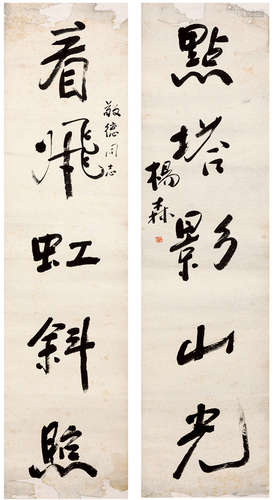 看飛虹斜照
敬德同志
點塔影山光
楊森